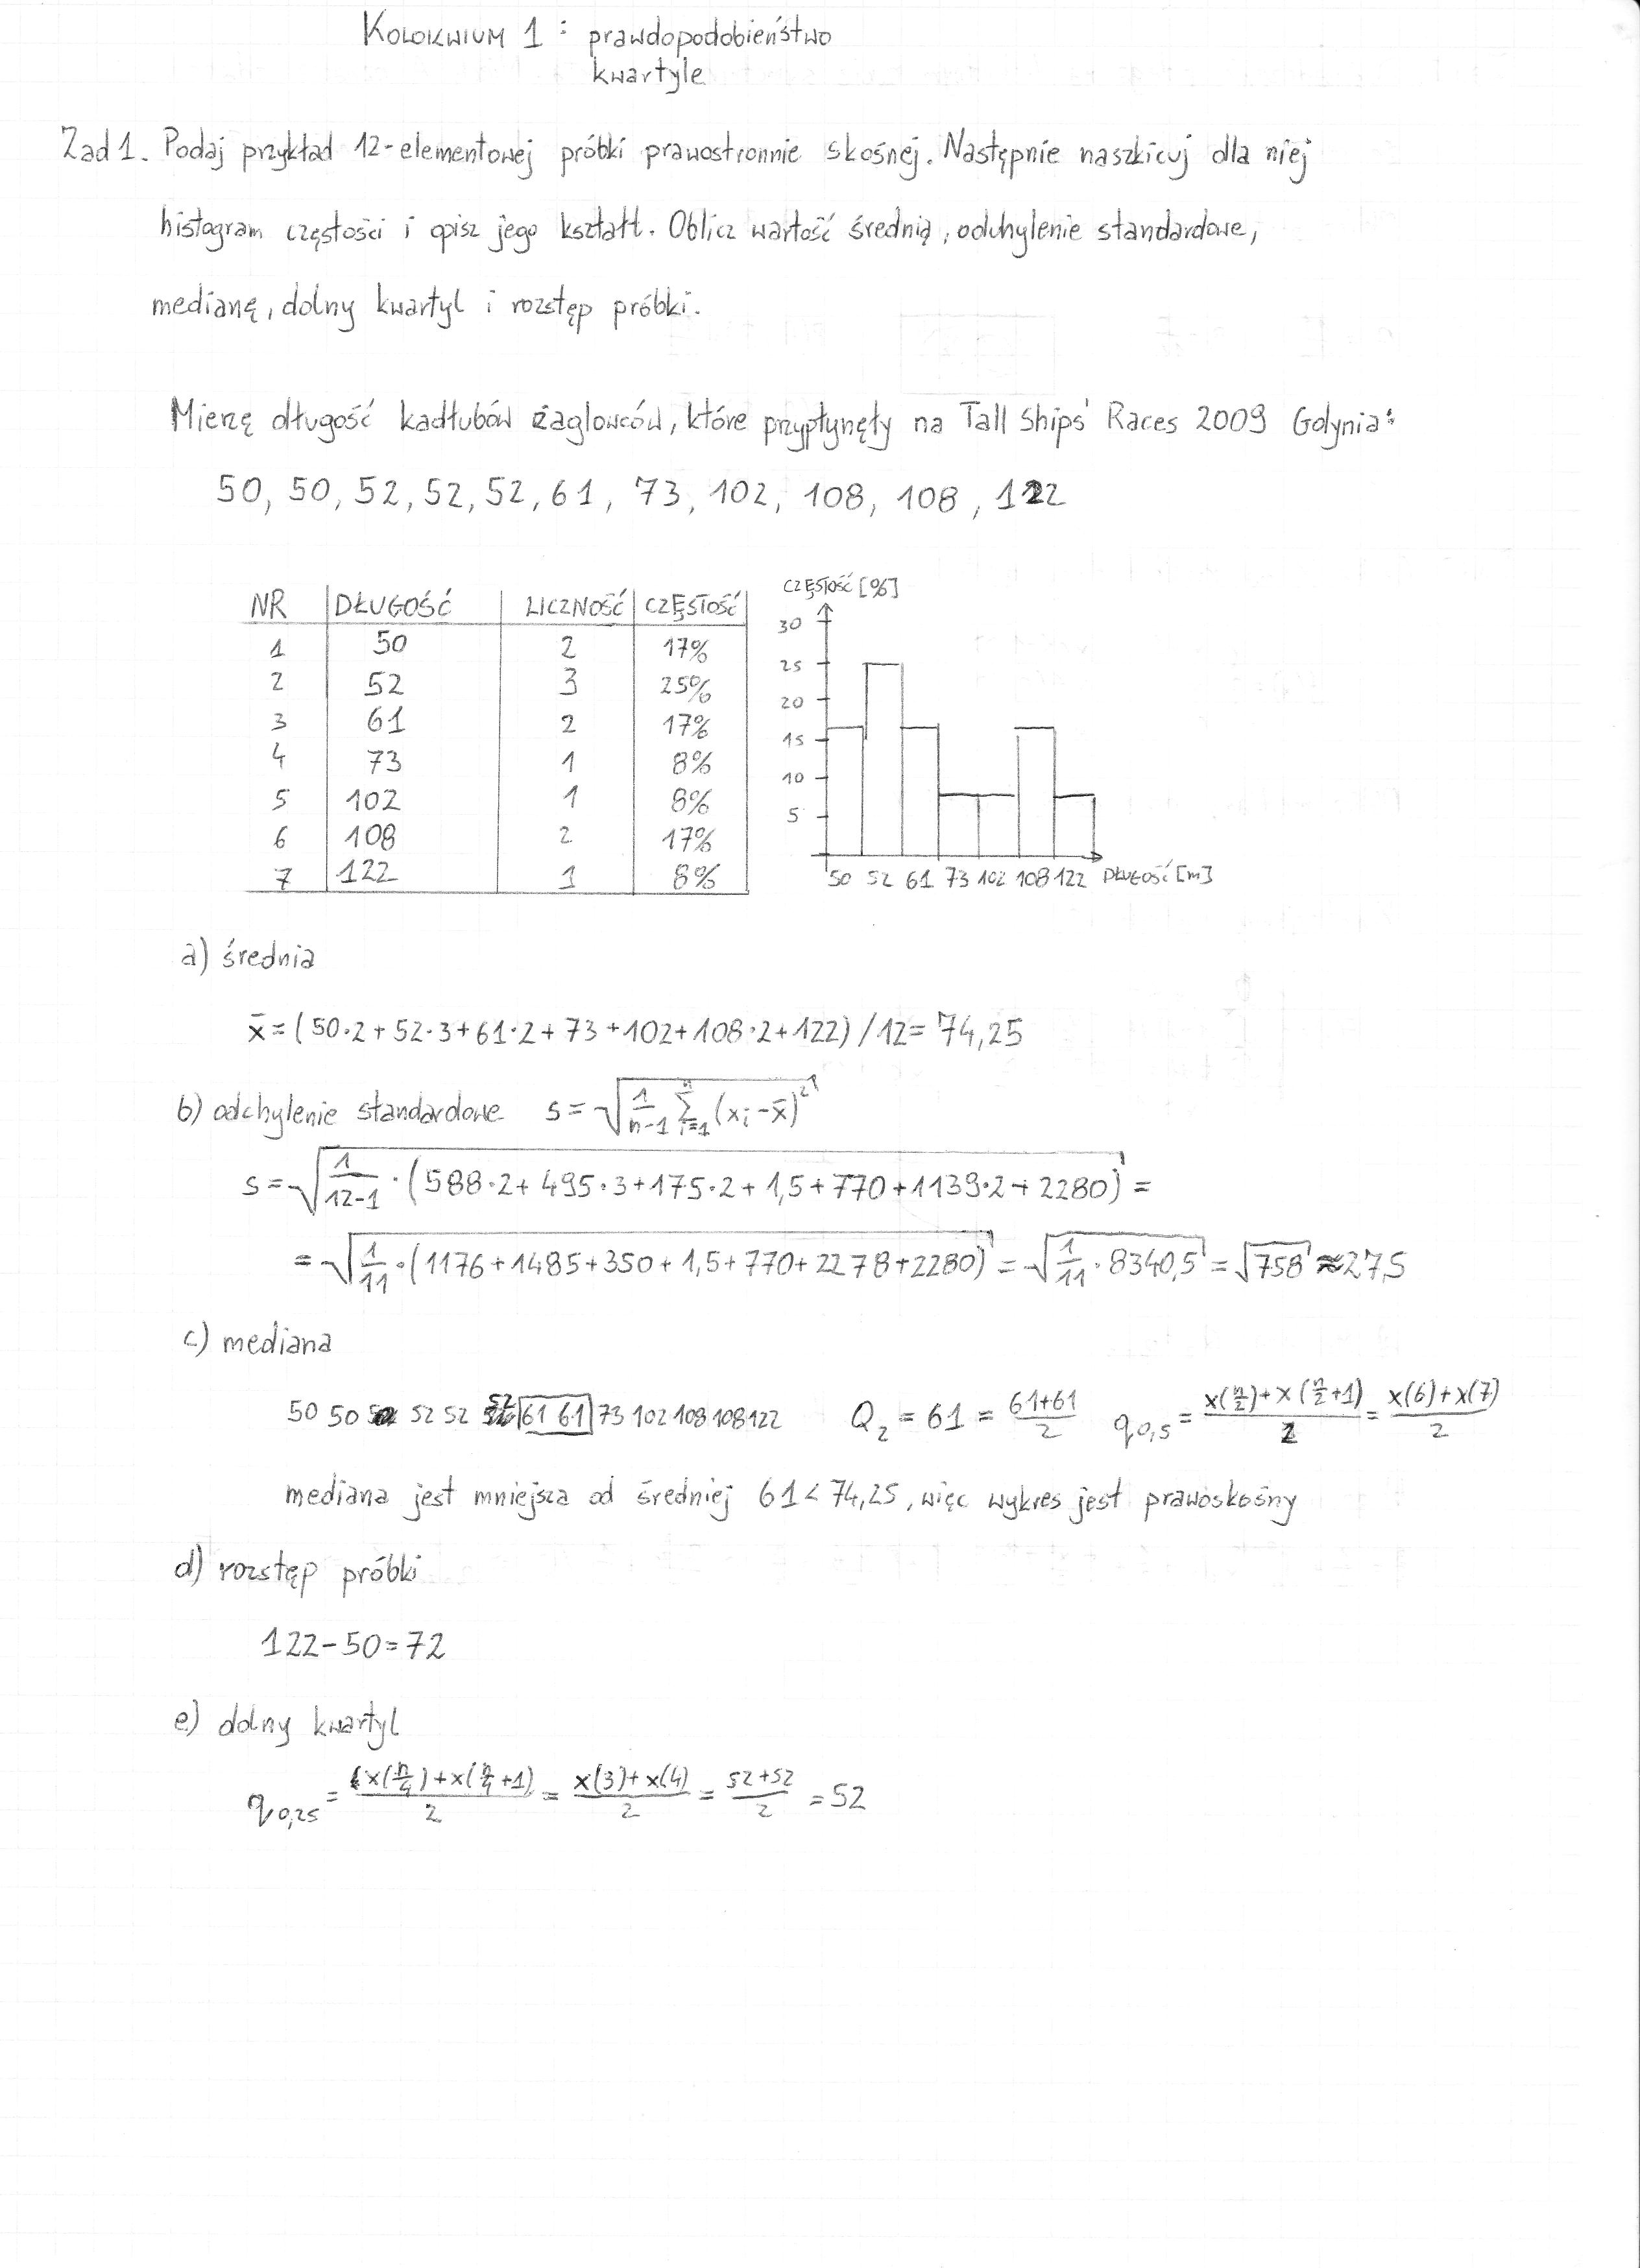 KOLOKWIUM 1 : prawdopodobieństwo
kwartyle
Zad 1. Podaj przykład 12-elementowej próbki prawostronnie skośnej. Następnie naszkicuj dla niej
histogram częstości i opisz jego kształt. Oblicz wartość średnią, odchylenie standardowe,
medianę, dolny kwartyl i rozstęp próbki.
Mierzę długość kadłubów żaglowców, które przypłynęły na Tall Ships' Races 2009 Gdynia:
50, 50, 52, 52, 52, 61, 73, 102, 108, 108, 122
NR DŁUGOŚĆ LICZNOŚĆ CZĘSTOŚĆ
1 50 2 17%
2 52 3 25%
3 61 2 17%
4 73 1 8%
5 102 1 8%
6 108 2 17%
7 122 1 8%
CZĘSTOŚĆ [%]
30
25
20
15
10
5
50 52 61 73 102 108 122 DŁUGOŚĆ [m]
a) średnia
x̄ = (50·2 + 52·3 + 61·2 + 73 + 102 + 108·2 + 122) / 12 = 74,25
b) odchylenie standardowe s = √(1/(n-1) Σ_{i=1}^{n} (x_i - x̄)²)
s = √(1/(12-1) · (588·2 + 495·3 + 175·2 + 1,5 + 770 + 1139·2 + 2280)) =
= √(1/11 · (1176 + 1485 + 350 + 1,5 + 770 + 2278 + 2280)) = √(1/11 · 8340,5) = √758 ≈ 27,5
c) mediana
50 50 52 52 52 61 61 73 102 108 108 122 Q₂ = 61 = (61+61)/2 q_{0,5} = (x(n/2) + x(n/2+1))/2 = (x(6) + x(7))/2
mediana jest mniejsza od średniej 61 < 74,25, więc wykres jest prawoskośny
d) rozstęp próbki
122 - 50 = 72
e) dolny kwartyl
q_{0,25} = (x(n/4) + x(n/4+1))/2 = (x(3) + x(4))/2 = (52+52)/2 = 52